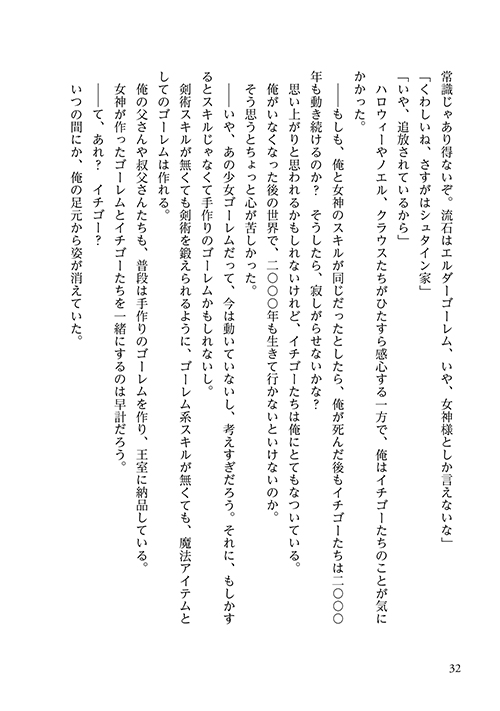 常識じゃあり得ないぞ。流石はエルダーゴーレム、いや、女神様としか言えないな」
「くわしいね、さすがはシュタイン家」
「いや、追放されているから」
ハロウィーやノエル、クラウスたちがひたすら感心する一方で、俺はイチゴーたちのことが気に
かかった。
――もしも、俺と女神のスキルが同じだったとしたら、俺が死んだ後もイチゴーたちは二〇〇〇
年も動き続けるのか? そうしたら、寂しがらせないかな?
思い上がりと思われるかもしれないけれど、イチゴーたちは俺にとてもなついている。
俺がいなくなった後の世界で、二〇〇〇年も生きて行かないといけないのか。
そう思うとちょっと心が苦しかった。
――いや、あの少女ゴーレムだって、今は動いていないし、考えすぎだろう。それに、もしかす
るとスキルじゃなくて手作りのゴーレムかもしれないし。
剣術スキルが無くても剣術を鍛えられるように、ゴーレム系スキルが無くても、魔法アイテムと
してのゴーレムは作れる。
俺の父さんや叔父さんたちも、普段は手作りのゴーレムを作り、王室に納品している。
女神が作ったゴーレムとイチゴーたちを一緒にするのは早計だろう。
――て、あれ? イチゴー?
いつの間にか、俺の足元から姿が消えていた。
32